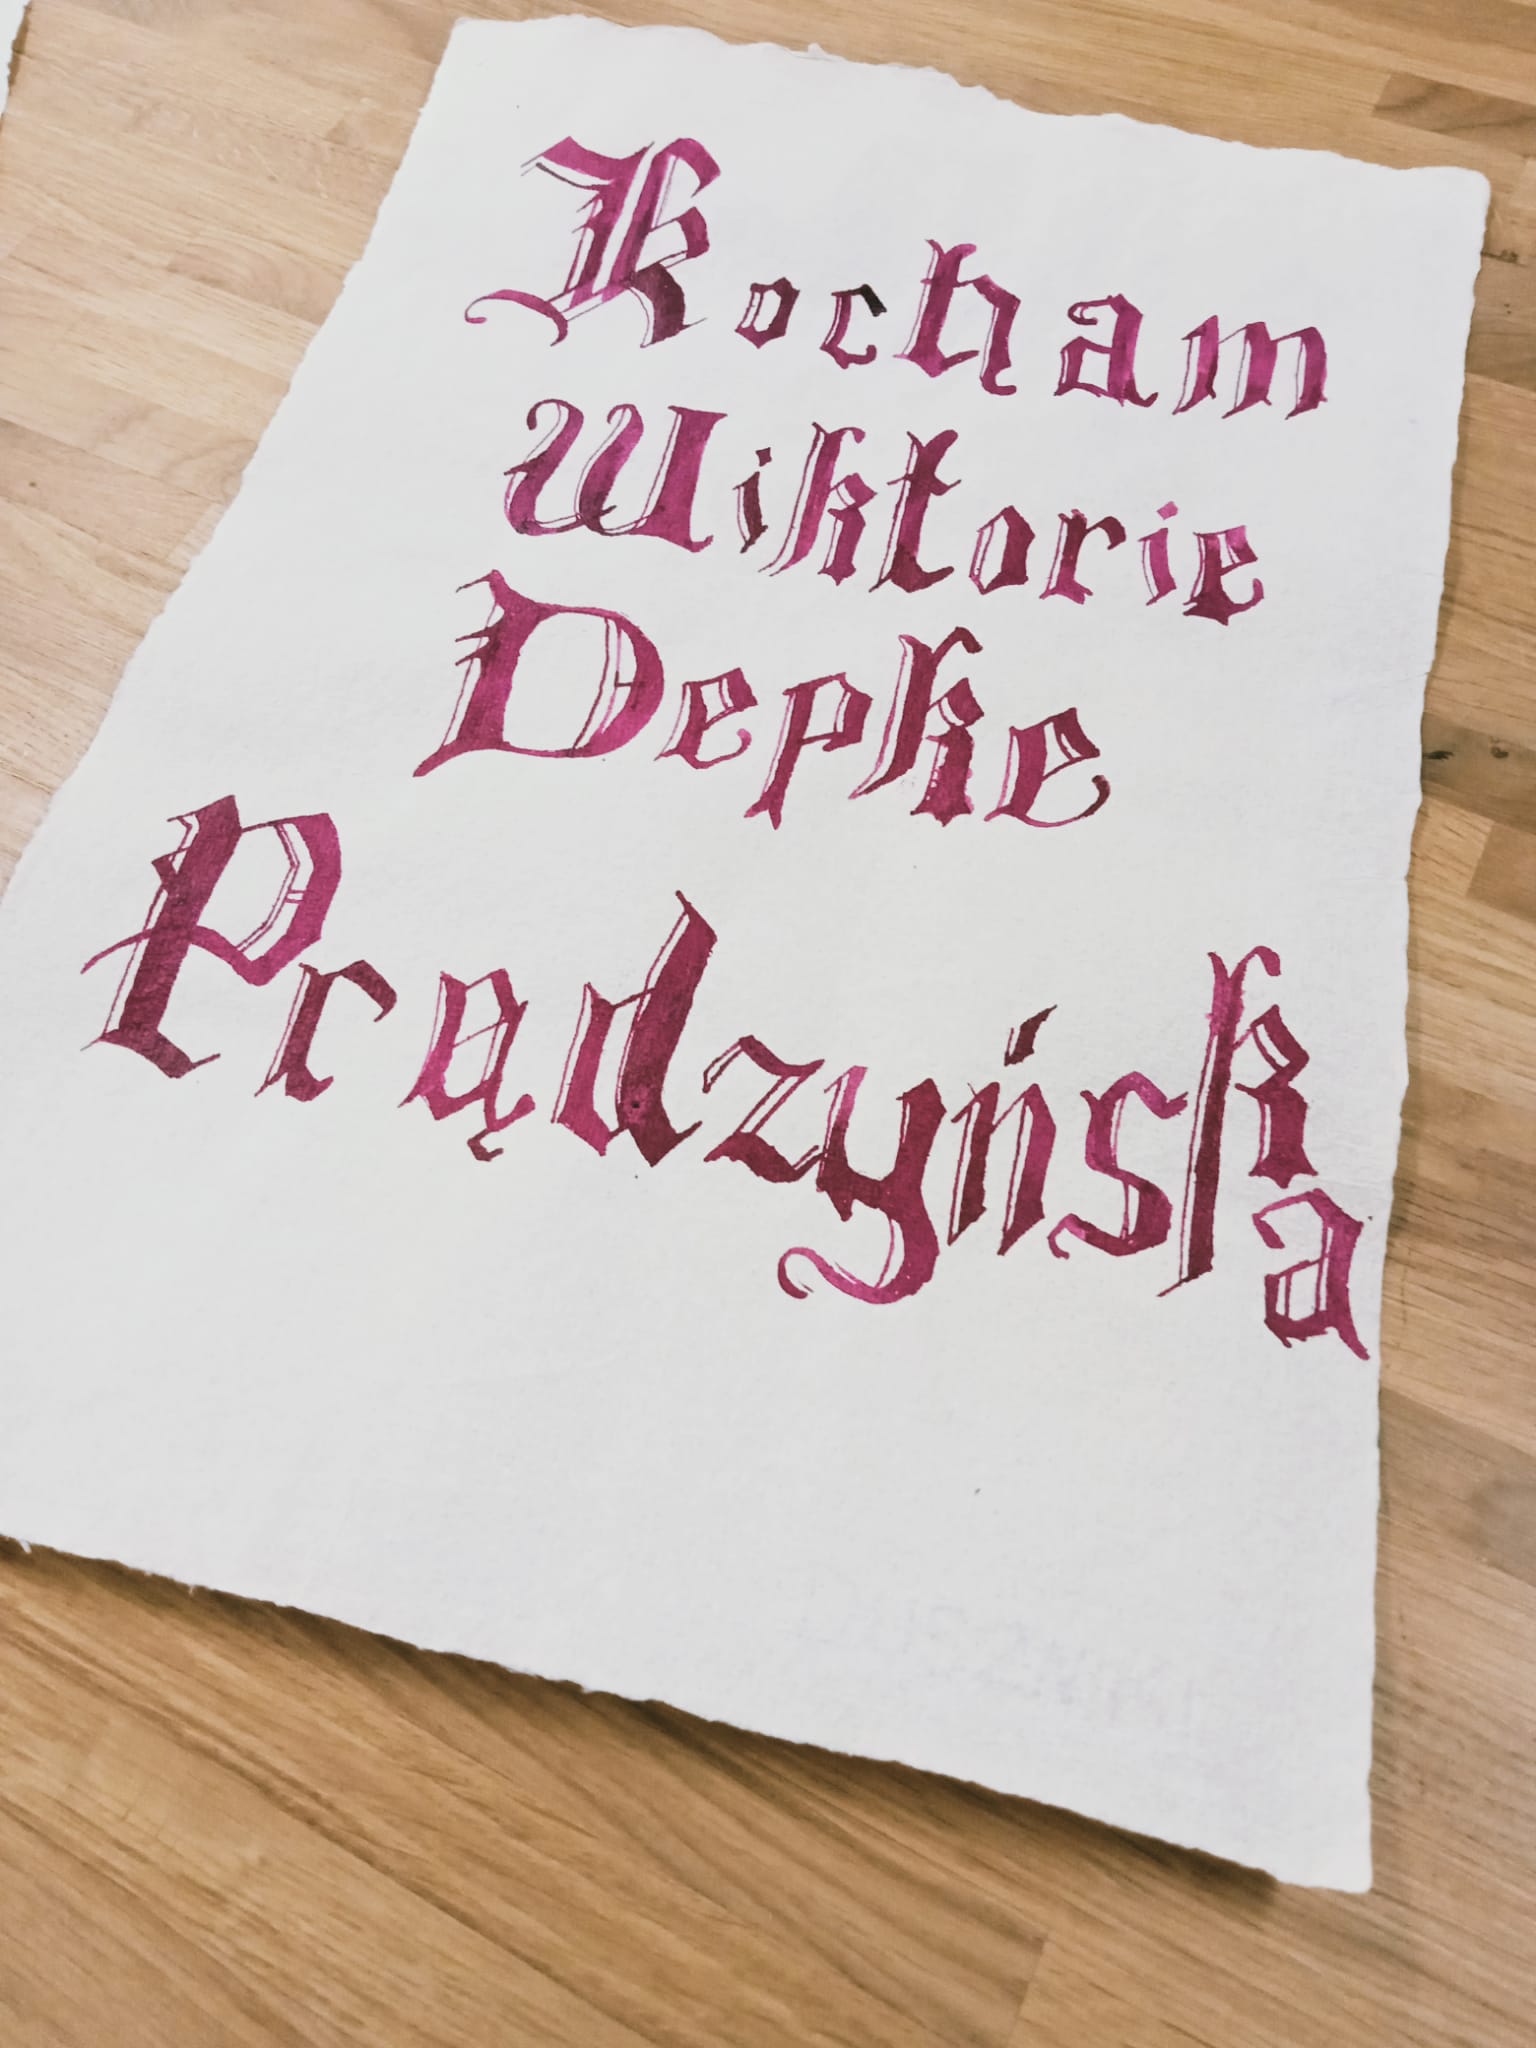 Kocham
Wiktorie
Depke
Prądzyńska